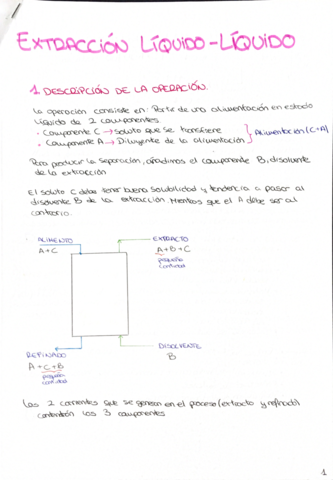 EXTRACCIÓN LÍQUIDO-LÍQUIDO
1. DESCRIPCIÓN DE LA OPERACIÓN.
La operación consiste en: Parte de una alimentación en estado
líquido de 2 componentes.
· Componente C → Soluto que se transfiere
· Componente A → Diluyente de la alimentación
} Alimentación (C+A)
Para producir la separación, añadimos el componente B, disolvente
de la extracción
El soluto C debe tener buena solubilidad y tendencia a pasar al
disolvente B de la extracción. Mientras que el A debe ser al
contrario.
ALIMENTO
A+C
EXTRACTO
A+B+C
pequeña
cantidad
REFINADO
A+C+B
pequeña
cantidad
DISOLVENTE
B
Las 2 corrientes que se generan en el proceso (extracto y refinado)
contendrán los 3 componentes
1